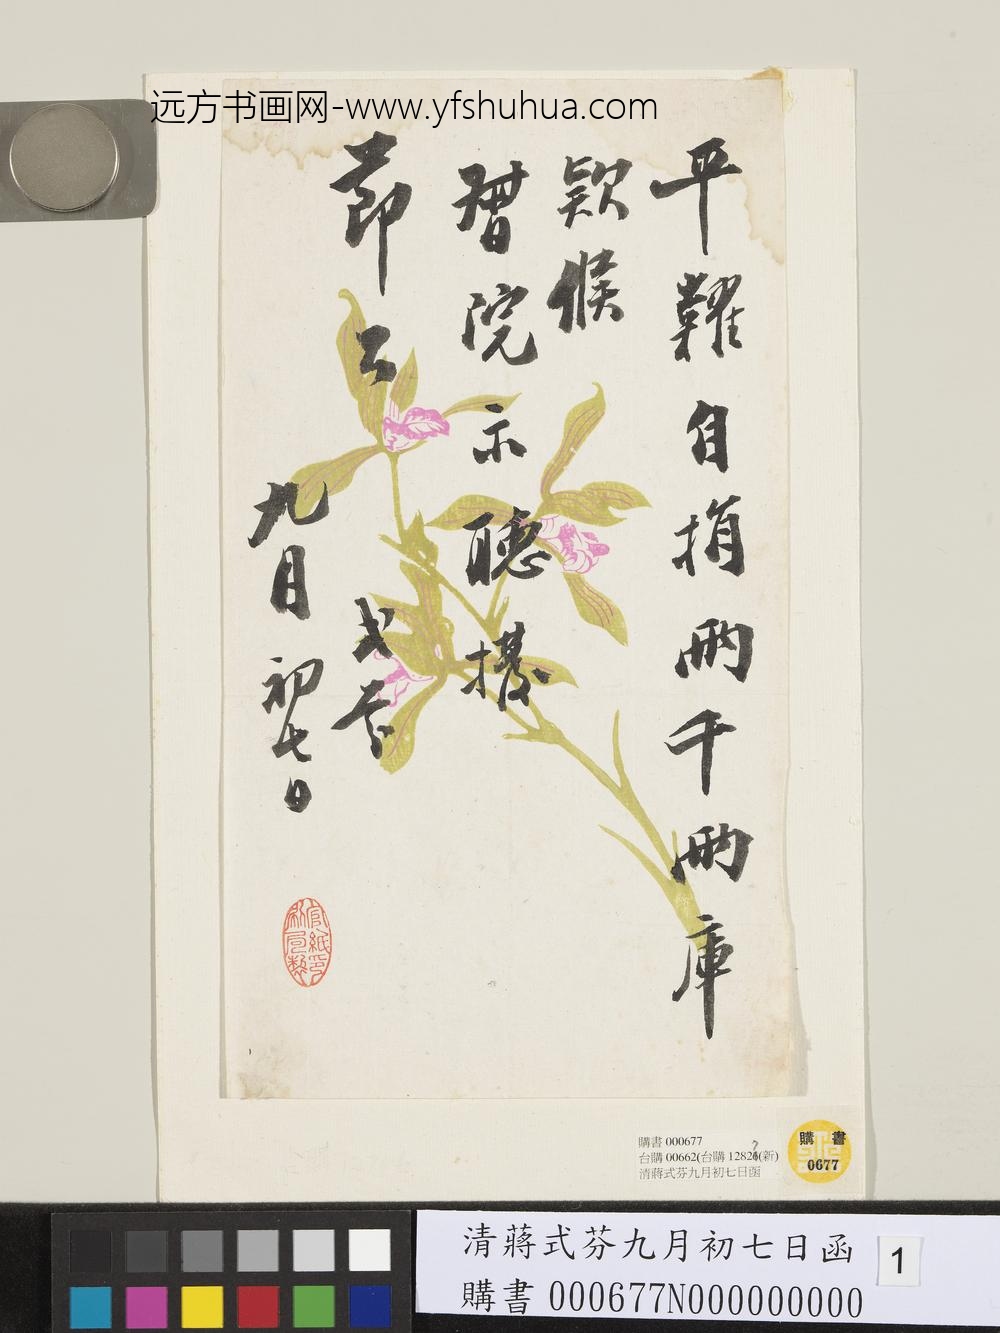 远方书画网-www.yfshuhua.com
平糶自捐兩千兩庫
欵候
瑨院示聽撥
節公
式芬
九月初七日
購書 000677
台購 00662(台購 12826(新)
清蔣式芬九月初七日函
購 書
0677
清蔣式芬九月初七日函
1
購書000677N000000000